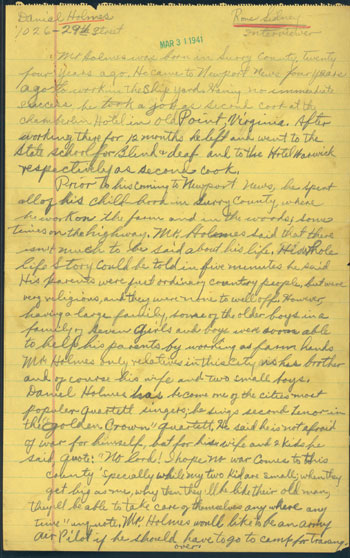 Daniel Holmes
1026-29th Street
Rome Sidney
Interviewer
MAR 31 1941
Mr Holmes was born in Surry County, twenty
four years ago. He came to Newport News four years
ago to work in the Ship Yard. Having no immediate
success he took a job as second cook at the
Chamberlin Hotel in old Point, Virginia. After
working there for 12 months he left and went to the
State school for Blind & deaf and to the Hotel Warwick
respectively as second cook.
Prior to his coming to Newport News, he spent
all of his childhood in Surry County, where
he work on the farm and in the woods, some
times on the highway. Mr. Holmes said that there
isn't much to be said about his life. His whole
life story could be told in five minutes he said
His parents were just ordinary country people, but were
very religious, and they were none to well off. However,
having a large family, some of the older boys in a
family of seven girls and boys were able
to help his parents by working as farm hands
Mr. Holmes only relatives in this city is his brother
and of course his wife and two small boys.
Daniel Holmes has become one of the cities most
popular Quartett singers; he sings second tenor in
the "Golden Crown" Quartett. He said he is not afraid
of war for himself, but for his wife and 2 kids he
said quote: "No Lord! I hope no war comes to this
county 'specially while my two kids are small; when they
get big as me, why then they'll be like their old man,
they'll be able to take care of themselves any where any
time" unquote. Mr. Holmes would like to be an army
air Pilot if he should have to go to camp for training.
over